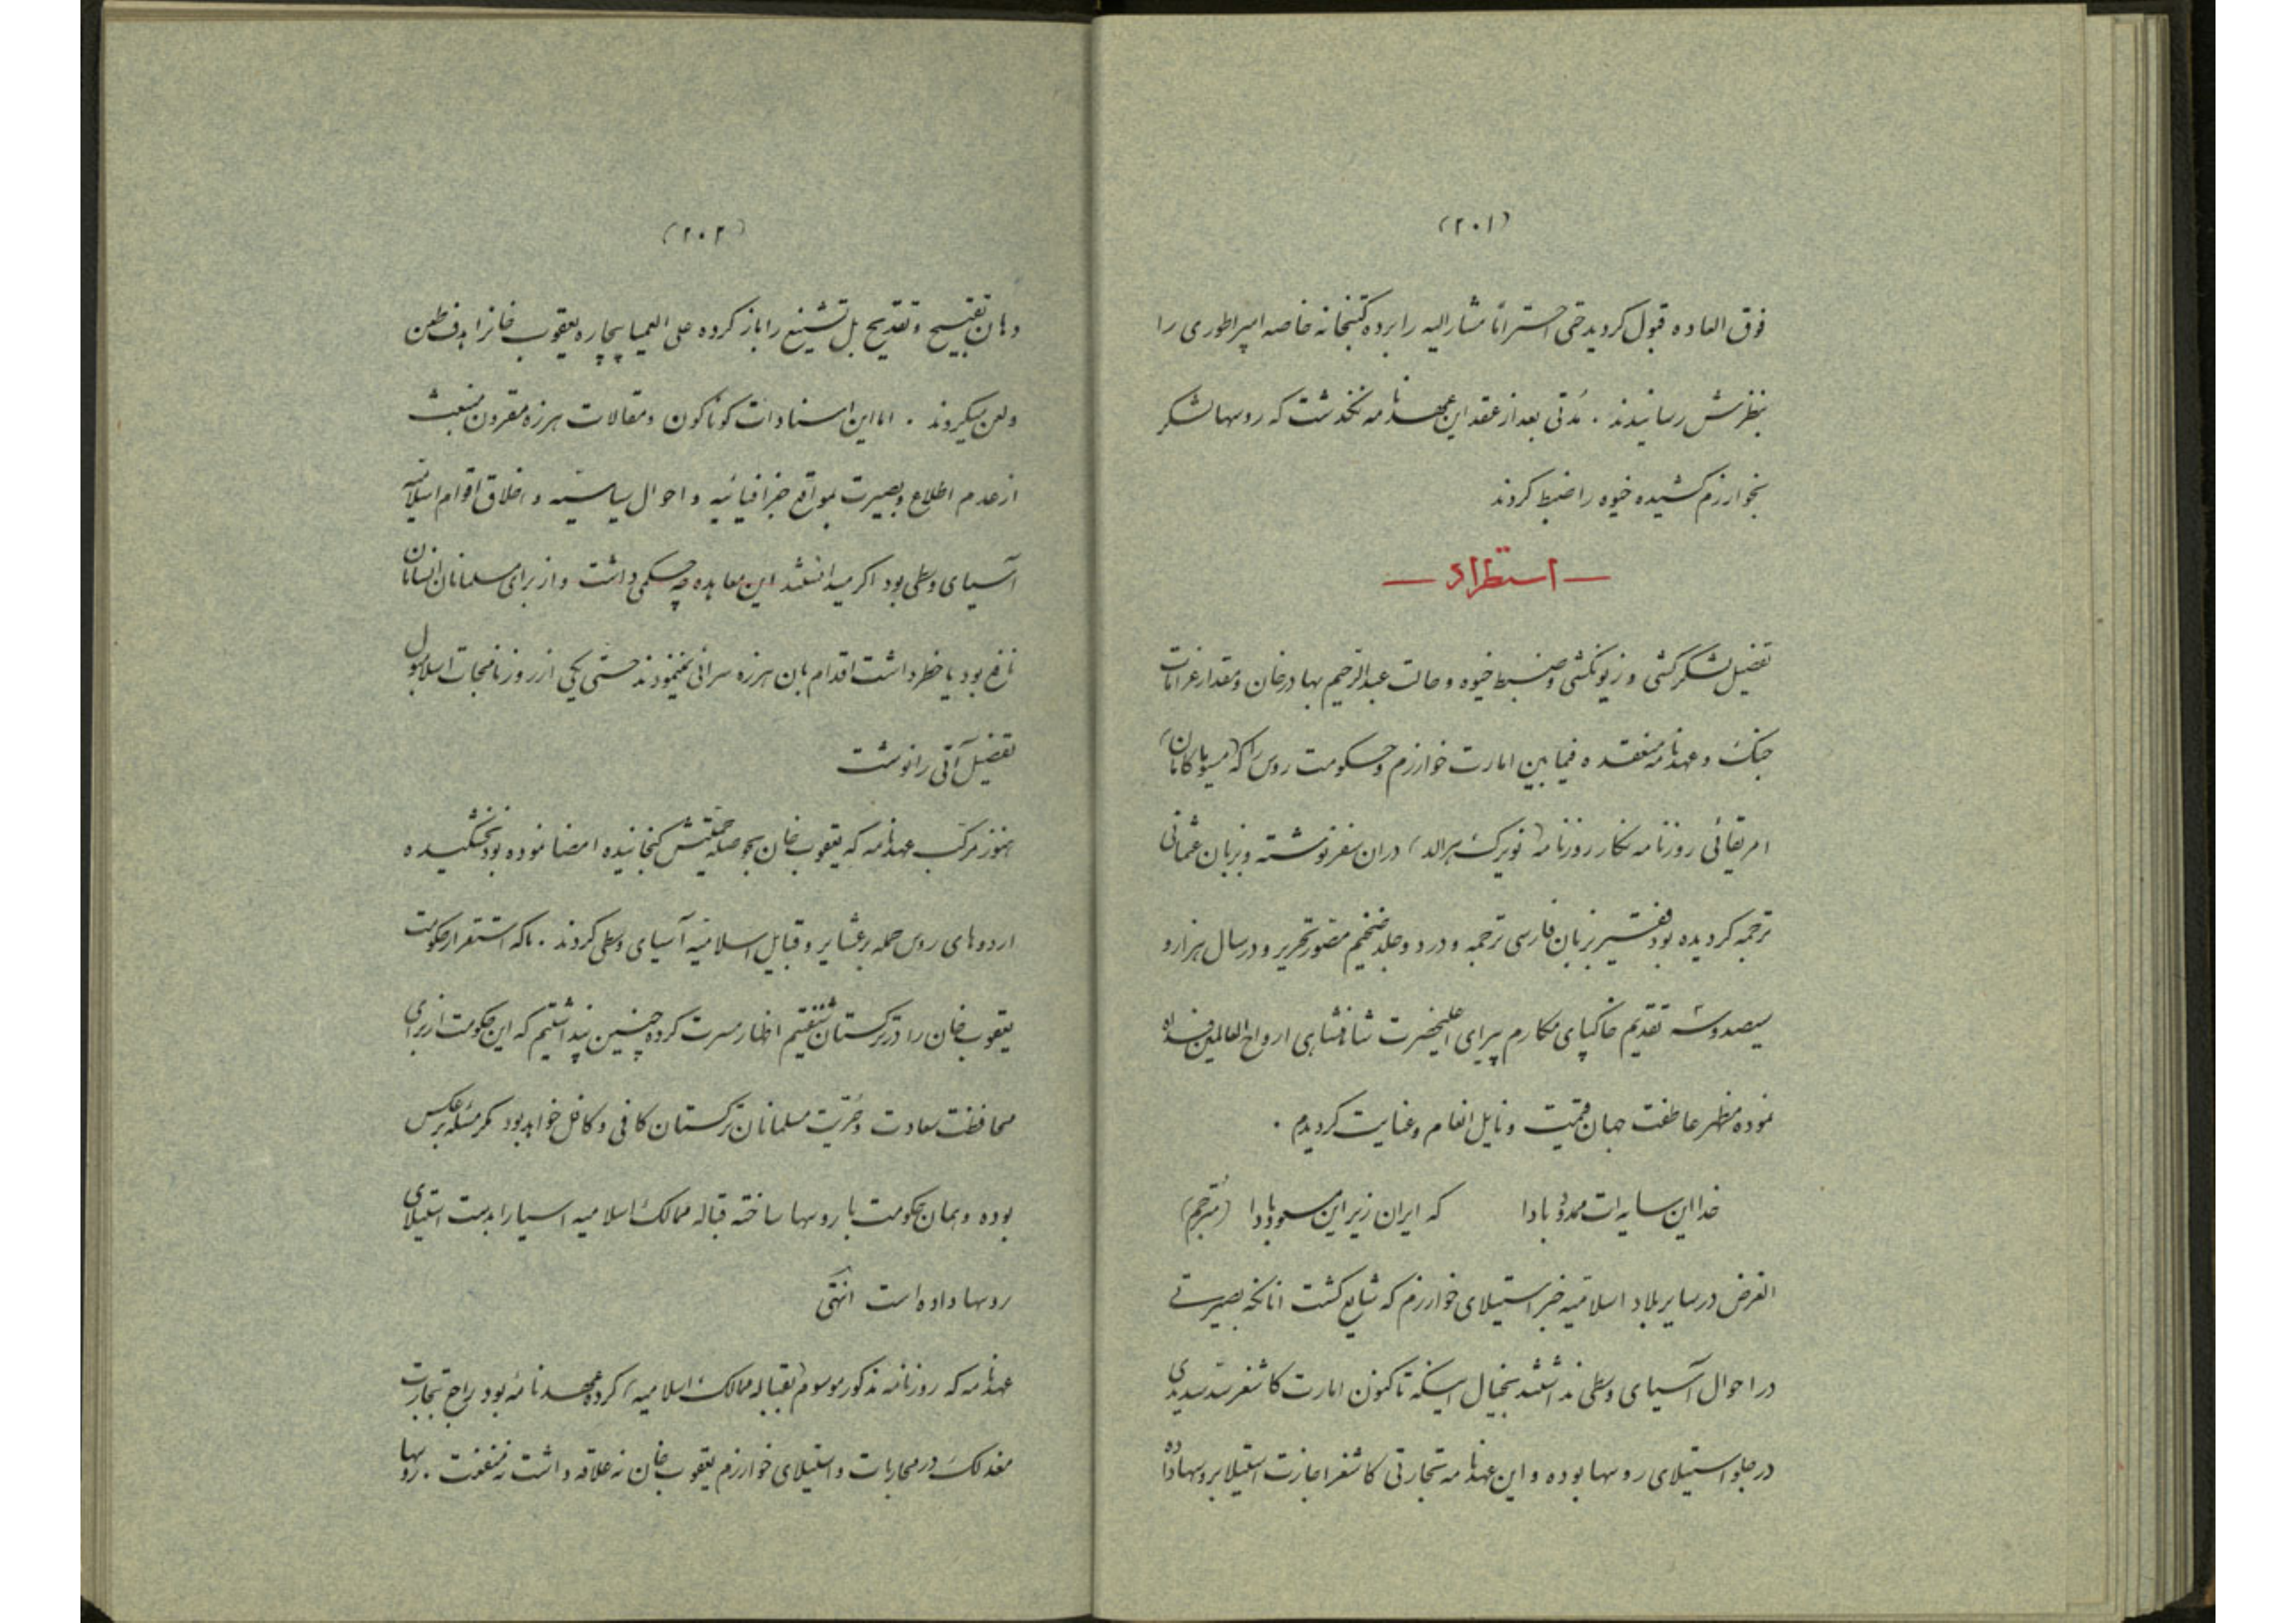 (۲۰۱)
فوق العاده قبول کردید حتی احتراماً مشارالیه را برده کتبخانه خاصه امپراطوری را
بنظرش رسانیدند . مُدتی بعد از عقد این عهدنامه نگذشت که روسها لشکر
بخوارزم کشیده خیوه را ضبط کردند
— استطراد —
تفصیل لشکرکشی و ضبط خیوه و حالت عبدالرحیم بهادرخان و مقدار غرامات
جنک و عهدنامه منعقده فیمابین امارت خوارزم و حکومت روس را که (میسو ماکاهان)
امریقائی روزنامه نکار روزنامه (نویرک هرالد) در ان سفر نوشته و بزبان عثمانی
ترجمه کردیده بود فقیر بزبان فارسی ترجمه و در دو جلد ضخیم مصور تحریر و در سال هزار و
سیصد و سه تقدیم خاکپای مکارم پیرای اعلیحضرت شاهنشاهی ارواح العالمین فداه
نموده مظهر عاطفت جهان قیمت و نایل انعام و عنایت کردیدم .
خدا این سایه ات ممدود بادا که ایران زیر این مسعود بادا (مُترجم)
الغرض در سایر بلاد اسلامیه خبر استیلای خوارزم که شایع کشت انانکه بصیرتی
در احوال آسیای وسطی نداشتند بخیال اینکه تاکنون امارت کاشغر سد سدیدی
در جلو استیلای روسها بوده و این عهدنامه تجارتی کاشغر اجازت استیلا بروسها داده
(۲۰۲)
دهان تقبیح و تقدیح بل تشنیع را باز کرده علی العمیا بیچاره یعقوب خانرا هدف طعن
ولعن میکردند . اما این اسنادات کوناکون و مقالات هرزه مقرون منبعث
از عدم اطلاع و بصیرت بمواقع جغرافیائیه و احوال سیاسیه و اخلاق اقوام اسلامیه
آسیای وسطی بود اکر میدانستند این معاهده چه حکمی داشت و از برای مسلمانان انسامان
نافع بود یا خطر داشت اقدام بان هرزه سرائی نمینمودند حتی یکی از روزنامجات اسلامبول
تفصیل آتی را نوشت
هنوز مرکب عهدنامه که یعقوب خان بحوصله حمیتش کنجانیده امضا نموده بود نخشکیده
اردوهای روس حمله بر عشایر و قبایل اسلامیه آسیای وسطی کردند . ماکه استقرار حکومت
یعقوب خان را در ترکستان شنفتیم اظهار مسرت کرده چنین پنداشتیم که این حکومت از برای
محافظت سعادت و حُرّیت مسلمانان ترکستان کافی و کافل خواهد بود مکر مسئله برعکس
بوده و همان حکومت با روسها ساخته قباله ممالک اسلامیه اسیا را بدست استیلای
روسها داده است انتهی
عهدنامه که روزنامه مذکور موسوم (بقباله ممالک اسلامیه) کرده عهدنامهٔ بود راجع بتجارت
معذلک در محاربات و استیلای خوارزم یعقوب خان نه علاقه داشت نه منفعت . روسها